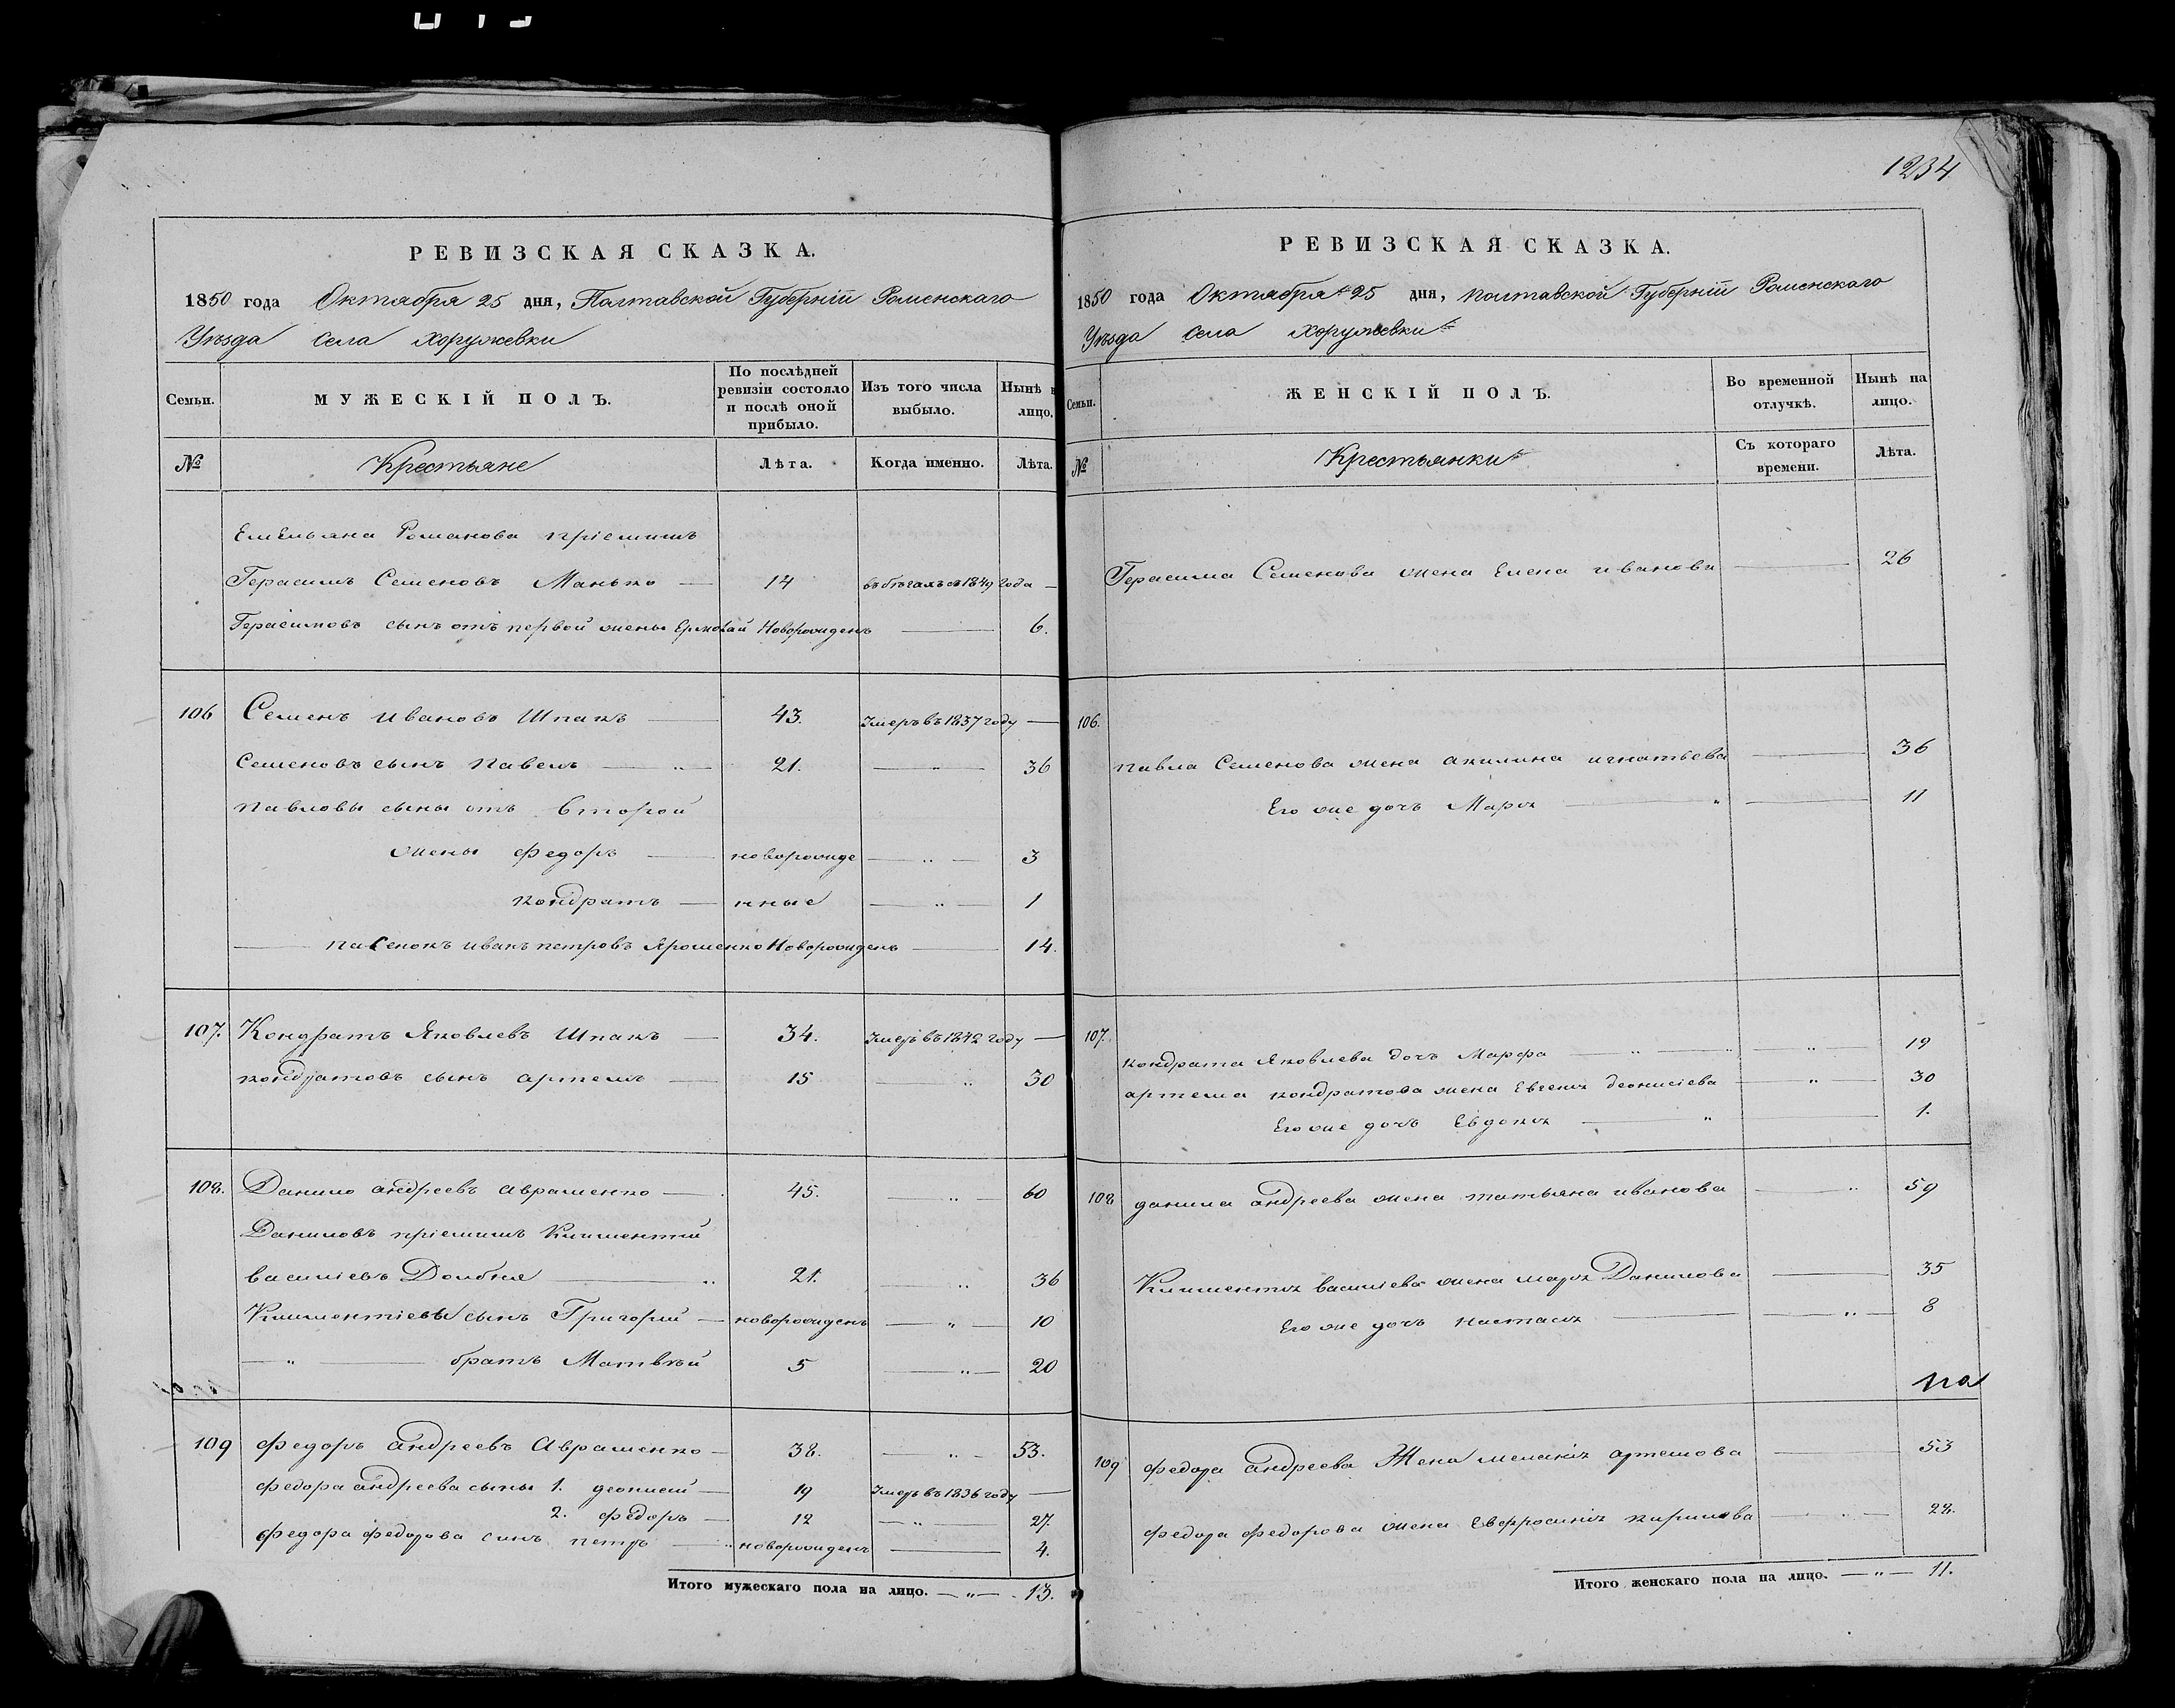 1234
РЕВИЗСКАЯ СКАЗКА.
1850 года Октября 25 дня, Полтавской Губерніи Роменскаго
Уѣзда Села Хоружевки
Семьи. МУЖЕСКІЙ ПОЛЪ. По послѣдней ревизіи состояло и послѣ оной прибыло. Изъ того числа выбыло. Нынѣ на лицо.
№ Крестьяне Лѣта. Когда именно. Лѣта.
Емельяна Романова пріемишъ
Герасимъ Семеновъ Манько — 14 въ бѣгахъ съ 1849 года —
Герасимовъ сынъ отъ первой жены Ермолай Новорожденъ — 6.
106 Семенъ Ивановъ Шпакъ — 43. Умеръ въ 1837 году —
Семеновъ сынъ Павелъ — 21. — 36
Павловы сыны отъ Второй
жены Федоръ — новорожде — 3
Кондратъ — нные — 1
— пасенокъ Иванъ Петровъ Ярошенко Новорожденъ — 14.
107. Кондратъ Яковлевъ Шпакъ — 34. Умеръ въ 1842 году —
Кондратовъ сынъ Артемъ — 15 — 30
108. Данило Андреевъ Аврашенко — 45. — 60
Даниловъ пріемишъ Климентій
Василіевъ Долбня — 21. — 36
Климентіевъ сынъ Григорій — новорожденъ — 10
— " — братъ Матвѣй 5 — 20
109 Федоръ Андреевъ Аврашенко — 38. — 53.
Федора Андреева сыны 1. Деонисій — 19 Умеръ въ 1836 году —
2. Федоръ — 12 — 27.
Федора Федорова синъ Петръ — новорожденъ — 4.
Итого мужескаго пола на лицо. — " — 13.
РЕВИЗСКАЯ СКАЗКА.
1850 года Октября 25 дня, Полтавской Губерніи Роменскаго
Уѣзда Села Хоружевки
Семьи. ЖЕНСКІЙ ПОЛЪ. Во временной отлучкѣ. Нынѣ на лицо.
№ Крестьянки Съ котораго времени. Лѣта.
Герасима Семенова жена Елена Иванова — 26
106.
Павла Семенова жена Акилина Игнатьева — 36
Его же дочь Марья — 11
107.
Кондрата Яковлева дочь Марфа — 19
Артема Кондратова жена Евгенія Деонисіева — 30
Его же дочь Евдокія — 1.
108 Данила Андреева жена Татьяна Иванова — 59
Климентія Василіева жена Марья Данилова — 35
Его же дочь Настасія — 8
109 Федора Андреева Жена Меланія Артемова — 53
Федора Федорова жена Евфросинія Кирилова — 28.
Итого женскаго пола на лицо. — " — 11.